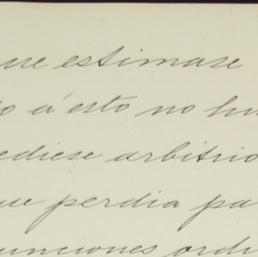 ue estimase
o á esto no hu
ediese arbitrio
ue perdia pa
unciones ordi